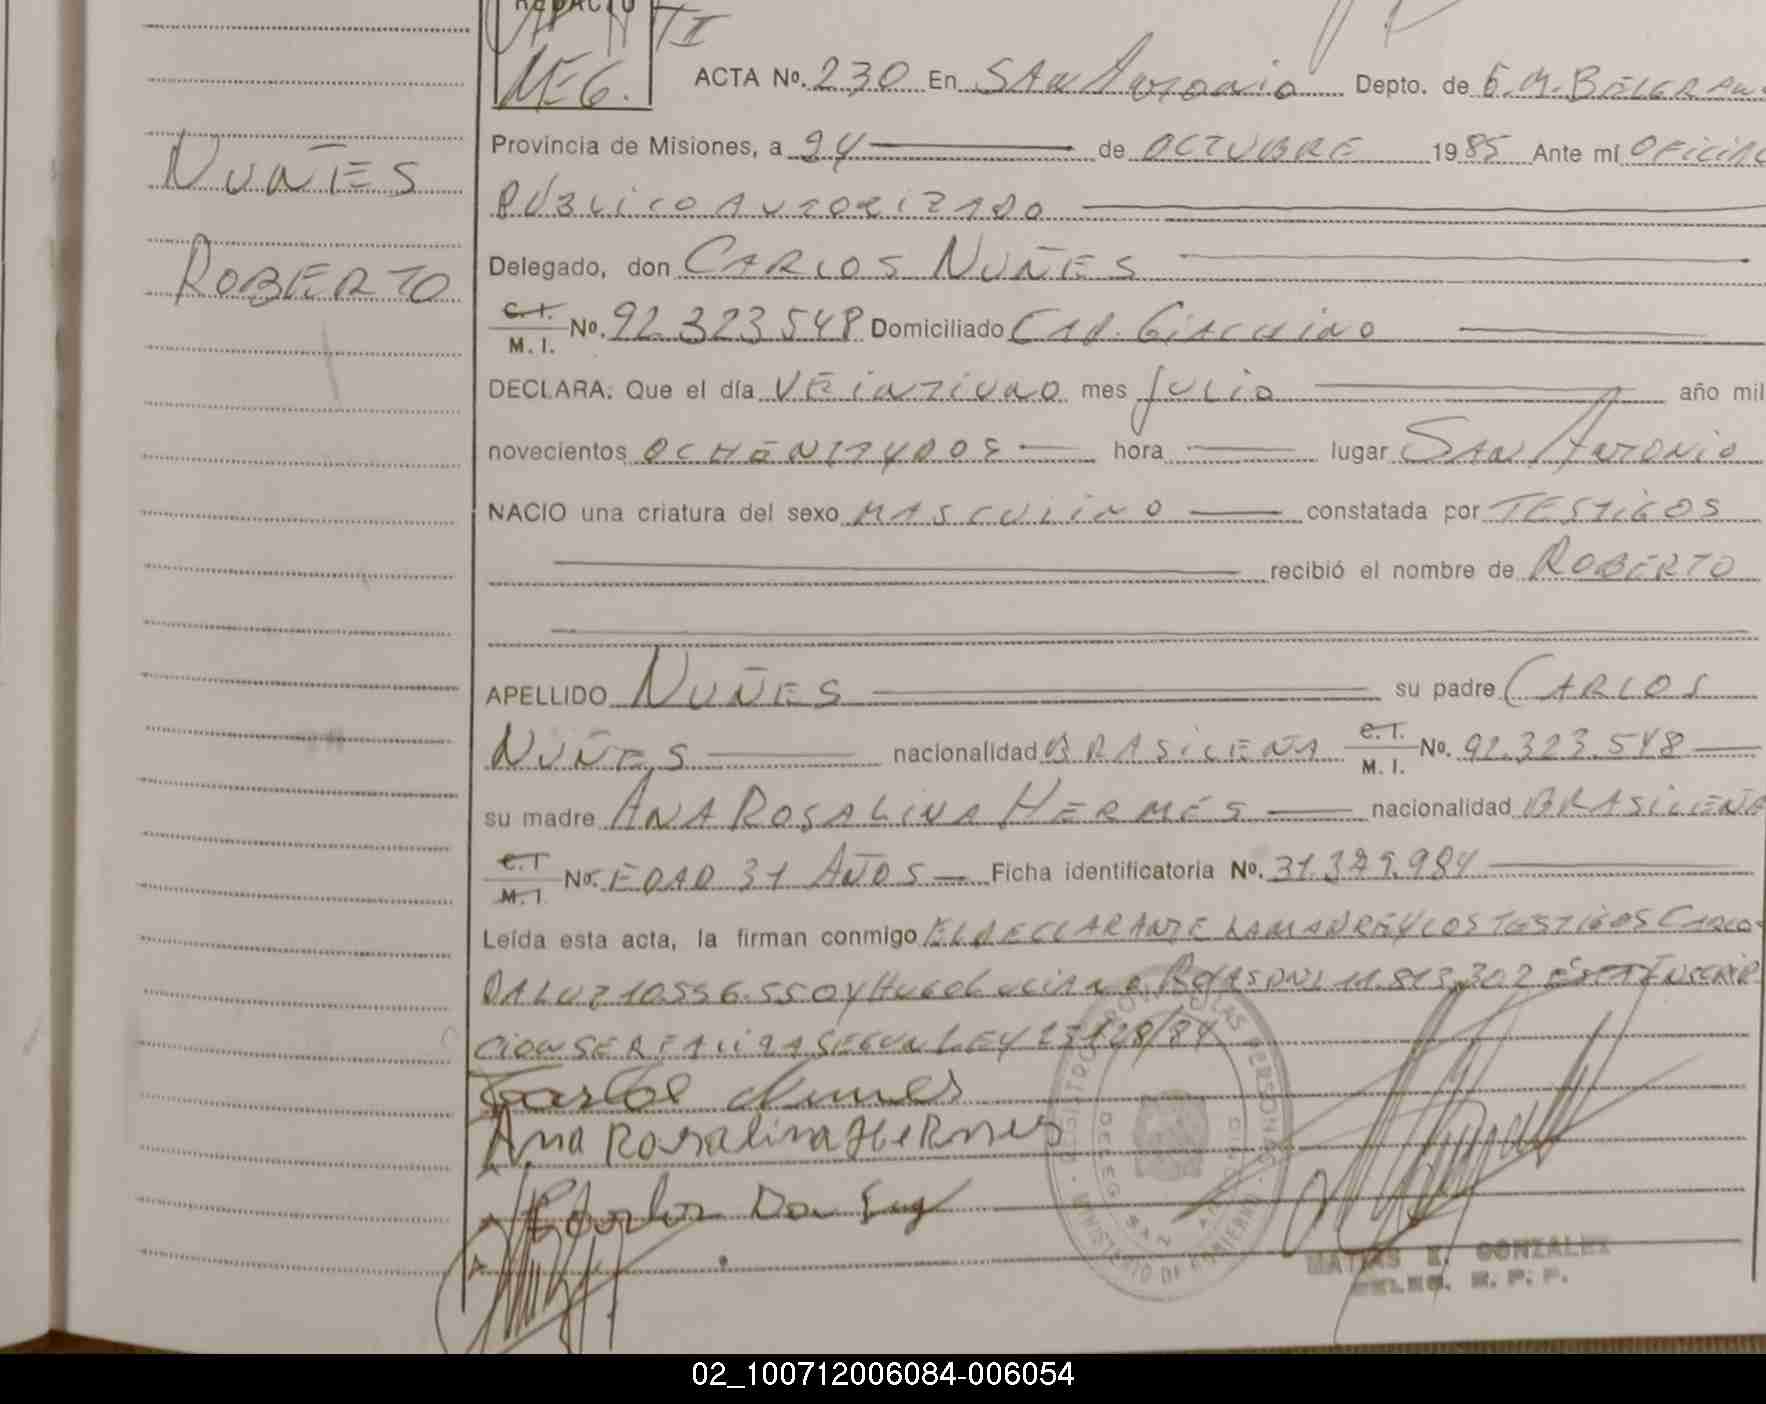 REDACTO
MEG.
ACTA No. 230 En San Antonio Depto. de G.M. BELGRANO
Provincia de Misiones, a 24 de OCTUBRE 1985 Ante mí OFICIAL
PÚBLICO AUTORIZADO
NUÑES
Delegado, don CARLOS NUÑES
ROBERTO
C.I. M.I. No. 92.323.548 Domiciliado CAP. GIACHINO
DECLARA: Que el día VEINTIUNO mes julio año mil
novecientos OCHENTAYDOS hora lugar SAN ANTONIO
NACIO una criatura del sexo MASCULINO constatada por TESTIGOS
recibió el nombre de ROBERTO
APELLIDO NUÑES su padre CARLOS
NUÑES nacionalidad BRASILEÑA C.I. M.I. No. 92.323.548
su madre ANA ROSALINA HERMES nacionalidad BRASILEÑA
C.I M.I No. EDAD 31 AÑOS Ficha identificatoria No. 31.379.984
Leída esta acta, la firman conmigo EL DECLARANTE LA MADRE Y LOS TESTIGOS CARLOS
DA LUZ 10.556.550 Y HUGO LUCIANO ROJAS DNI 11.813.302 ESTA INSCRIP
CION SE REALIZA SEGUN LEY 23128/84
Carlos Nunes
Ana Rosalina Hermes
Carlos Da Luz
MATIAS E. GONZALEZ
DELEG. R. P. P.
02_100712006084-006054